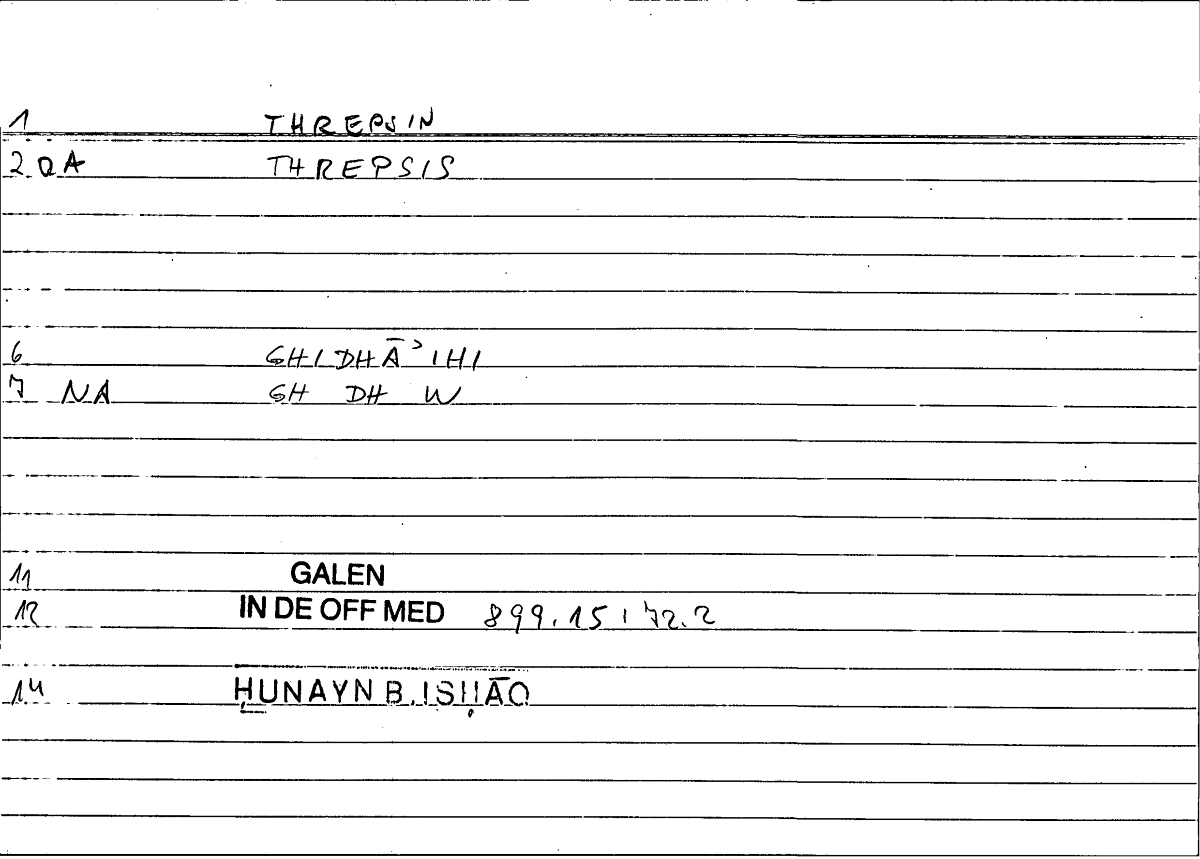 1 THREPSIN
2 QA THREPSIS
6 GHIDHĀʾIHI
7 NA GH DH W
11 GALEN
12 IN DE OFF MED 899.15 ; 72.2
14 ḤUNAYN B. ISḤĀQ